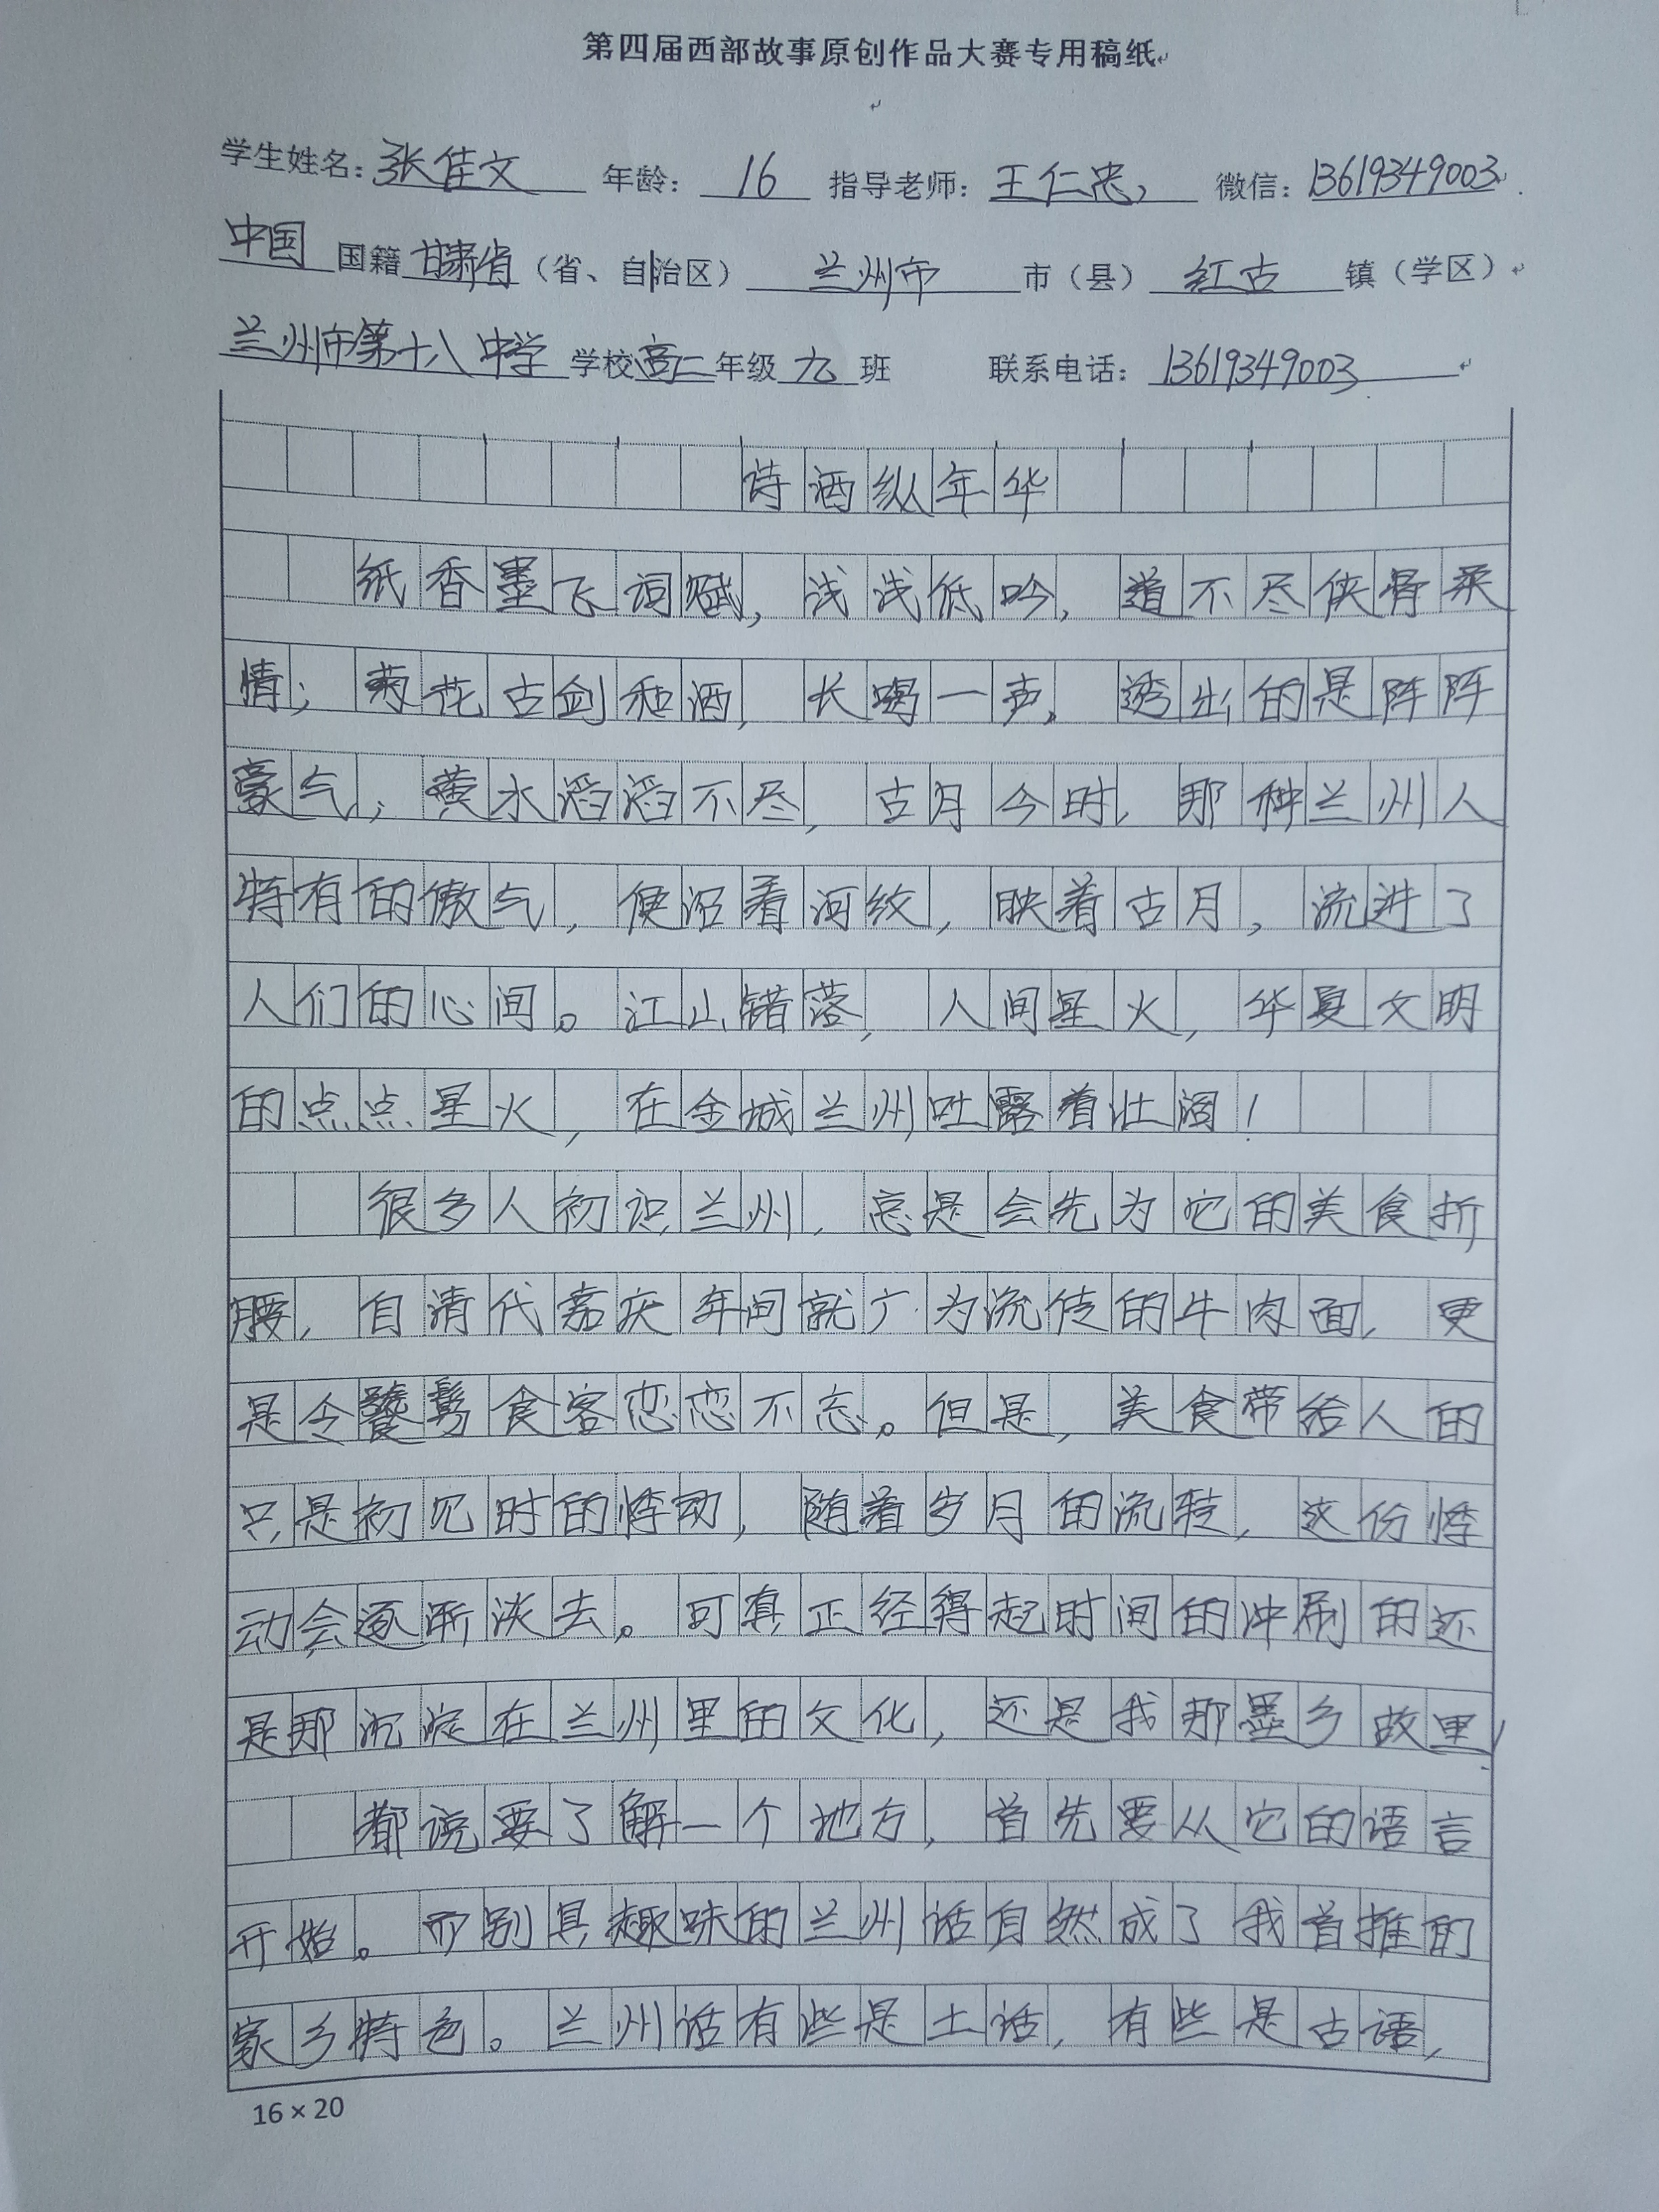 第四届西部故事原创作品大赛专用稿纸
学生姓名：张佳文 年龄：16 指导老师：王仁忠 微信：13619349003
中国国籍甘肃省（省、自治区）兰州市市（县）红古镇（学区）
兰州市第十八中学学校高二年级九班 联系电话：13619349003
诗酒纵年华
纸香墨飞词赋，浅浅低吟，道不尽侠骨柔
情；菊花古剑和酒，长喝一声，透出的是阵阵
豪气；黄水滔滔不尽，古月今时，那种兰州人
特有的傲气，便沿着河纹，映着古月，流进了
人们的心间。江山错落，人间星火，华夏文明
的点点星火，在金城兰州吐露着壮阔！
很多人初识兰州，总是会先为它的美食折
腰，自清代嘉庆年间就广为流传的牛肉面，更
是令饕餮食客恋恋不忘。但是，美食带给人的
只是初见时的悸动，随着岁月的流转，这份悸
动会逐渐淡去。可真正经得起时间的冲刷的还
是那沉淀在兰州里的文化，还是我那墨乡故里！
都说要了解一个地方，首先要从它的语言
开始。而别具趣味的兰州话自然成了我首推的
家乡特色。兰州话有些是土话，有些是古语，
16×20